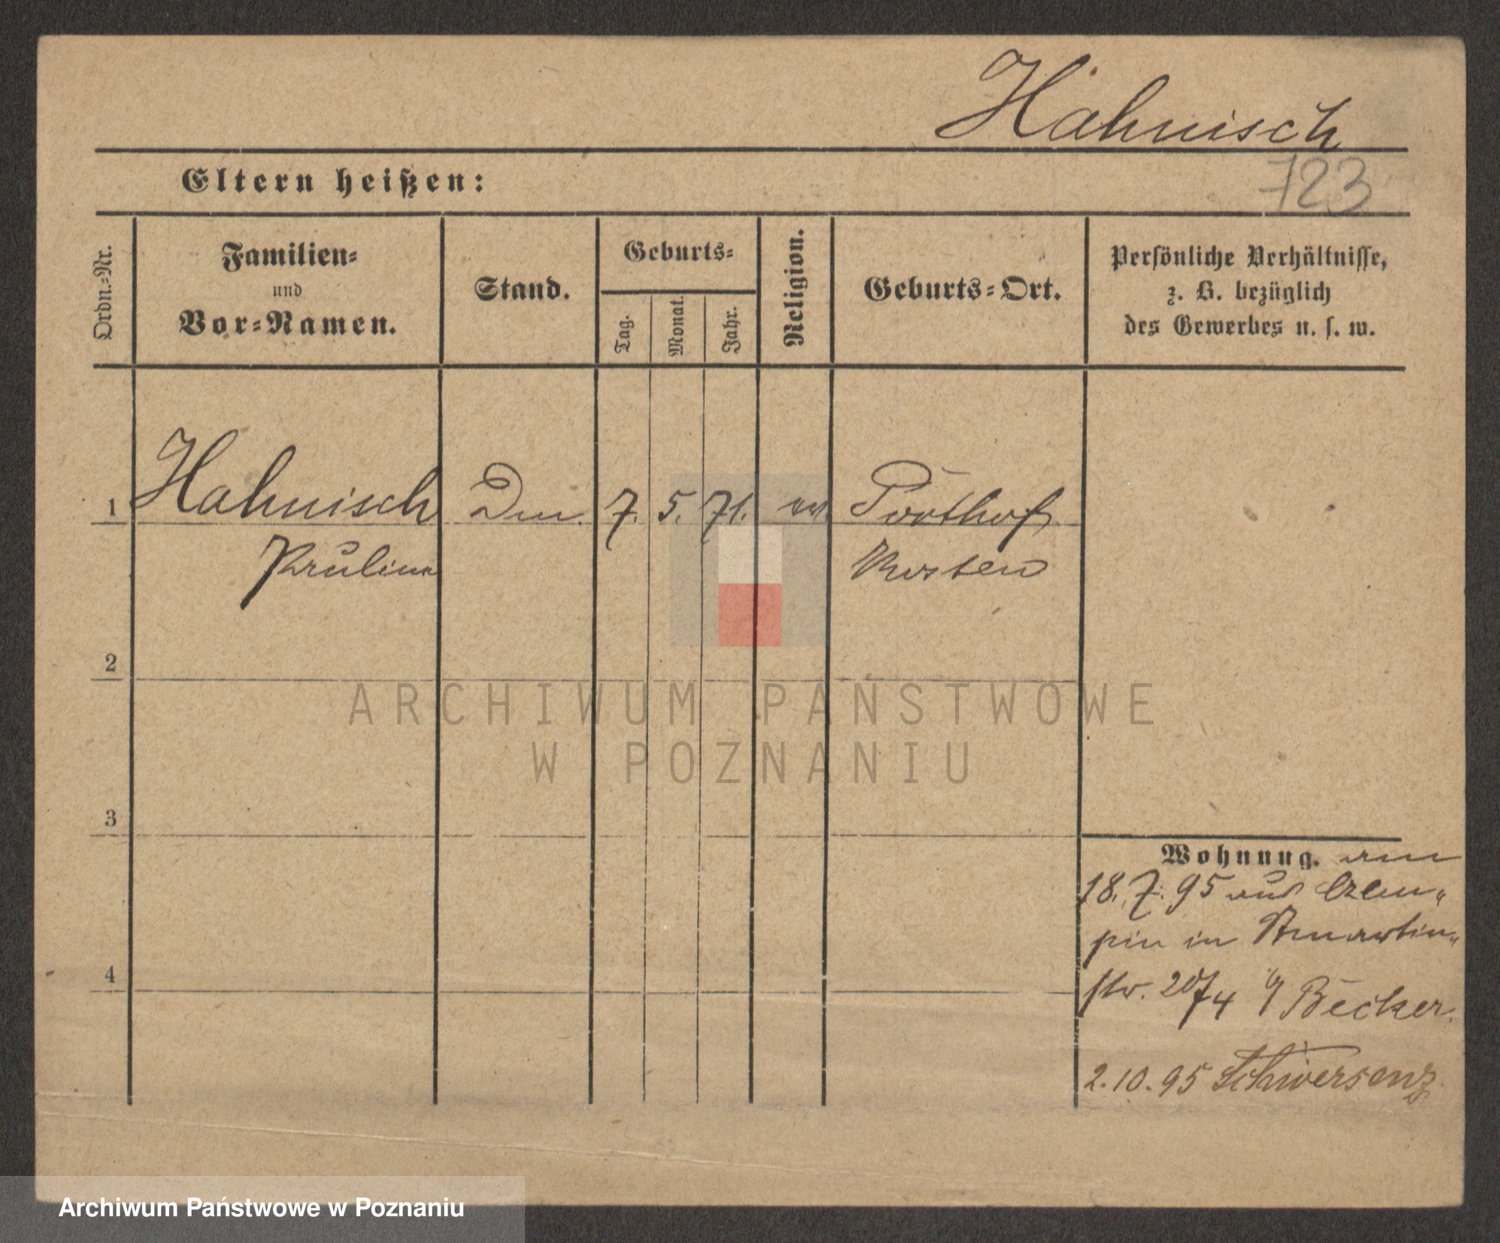 Hähnisch
723
Eltern heißen:
Ordn.-Nr.
Familien-
und
Vor-Namen.
Stand.
Geburts-
Tag.
Monat.
Jahr.
Religion.
Geburts-Ort.
Persönliche Verhältnisse,
z. B. bezüglich
des Gewerbes u. s. w.
1 Hahnisch 7. 5. 71.
Paulina Kosten
2
3
4
Wohnung. am
18. 7. 95 aus Czem-
pin in
str. 20/4 Becker.
2.10.95 Schwersenz
ARCHIWUM PAŃSTWOWE
W POZNANIU
Archiwum Państwowe w Poznaniu